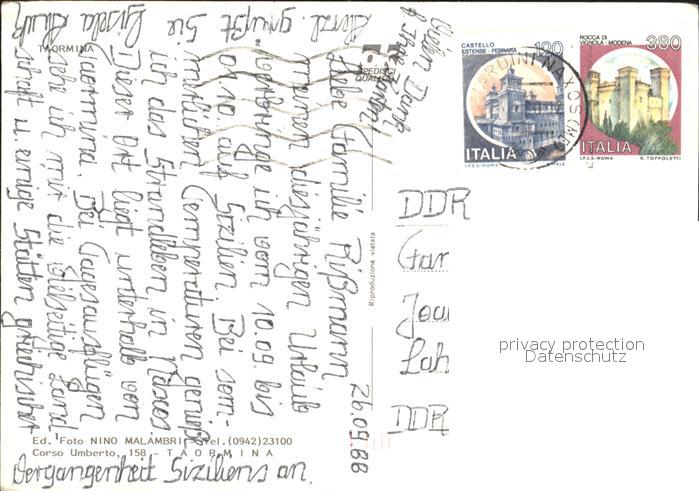 TAORMINA
26.09.88
Liebe Familie Rißmann
meinen diesjährigen Urlaub
verbringe ich vom 10.09. bis
01.10. auf Sizilien. Bei som-
merlichen Temperaturen genieße
ich das Strandleben in Naxos.
Dieser Ort liegt unterhalb von
Taormina. Bei Tagesausflügen
sehe ich mir die vielseitige Land-
schaft u. einige Stätten griechischer
Vergangenheit Siziliens an.
Herzl. grüßt Sie
Gisela
Vielen Dank
f. Ihre Karten
SPEDISCI
QUALITÀ
CASTELLO
ESTENSE - FERRARA
120
ITALIA
I.P.Z.S. - ROMA
ROCCA DI
VIGNOLA - MODENA
380
ITALIA
I.P.Z.S. - ROMA
G. TOFFOLETTI
GIARDINI NAXOS (ME)
Riproduzione vietata
DDR
Fam
Lah
DDR
privacy protection
Datenschutz
Ed. Foto NINO MALAMBRI - Tel.(0942)23100
Corso Umberto, 158 - TAORMINA